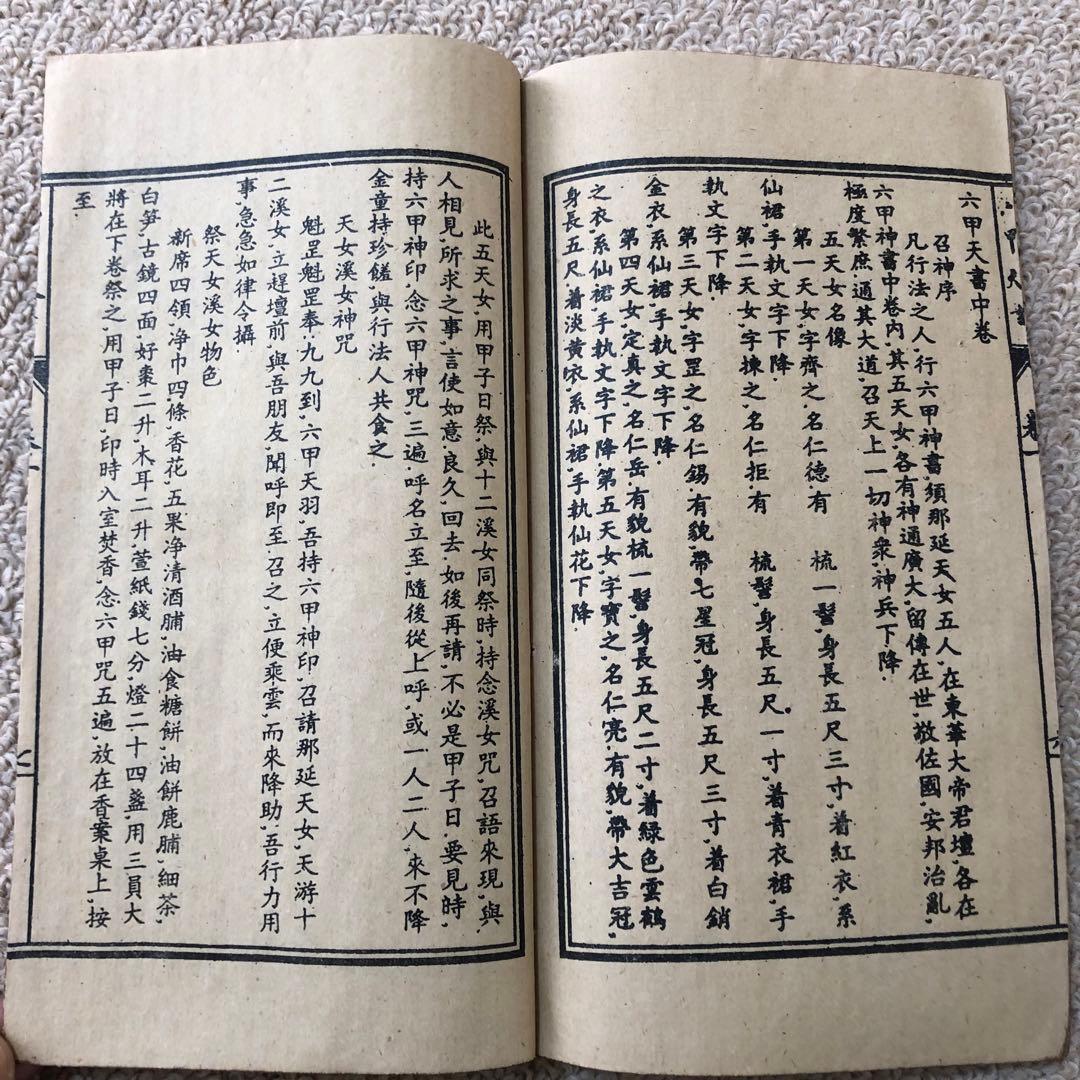 六甲天書中卷
召神序
凡行法之人,行六甲神書,須那延天女五人,在東華大帝君壇,各在
六甲神書中卷內,其五天女,各有神通廣大,留傳在世,救佐國,安邦治亂,
極度繁庶,通其大道,召天上一切神衆,神兵下降,
五天女名像
第一天女,字齊之,名仁德有 梳一髻,身長五尺三寸,着紅衣,系
仙裙,手執文字下降,
第二天女,字揀之,名仁拒有 梳髻,身長五尺一寸,着青衣裙,手
執文字下降,
第三天女,字罡之,名仁錫,有貌,帶七星冠,身長五尺三寸,着白銷
金衣,系仙裙,手執文字下降,
第四天女,定真之,名仁岳,有貌,梳一髻,身長五尺二寸,着綠色雲鶴
之衣,系仙裙,手執文字下降,第五天女,字寶之,名仁亮,有貌,帶大吉冠,
身長五尺,着淡黄衣,系仙裙,手執仙花下降,
此五天女,用甲子日祭,與十二溪女同祭時,持念溪女咒,召語來現,與
人相見,所求之事,言使如意,良久,回去,如後再請,不必是甲子日,要見時,
持六甲神印,念六甲神咒,三遍,呼名立至,隨後從上呼,或一人二人,來不降
金童持珍饈,與行法人共食之,
天女溪女神咒
魁罡魁罡奉,九九到,六甲天羽,吾持六甲神印,召請那延天女,天游十
二溪女,立趕壇前,與吾朋友,聞呼即至,召之,立便乘雲,而來降助,吾行力用
事,急急如律令攝
祭天女溪女物色
新席四領,净巾四條,香花,五果净清酒脯,油食糖餅,油餅鹿脯,細茶,
白笋,古鏡四面,好棗二升,木耳二升,萱紙錢七分,燈二十四盞,用三員大
將在下卷祭之,用甲子日,印時入室焚香,念六甲咒五遍,放在香案桌上,按
至